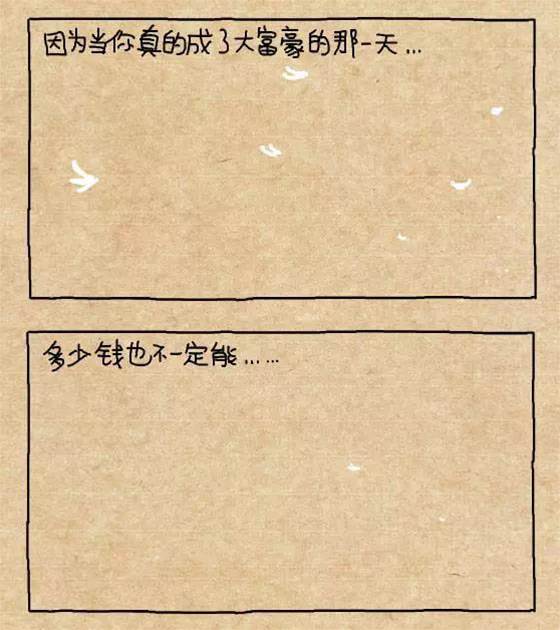 因为当你真的成了大富豪的那一天...
多少钱也不一定能......